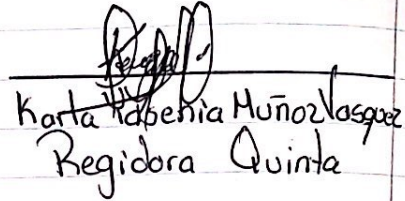 Karla Yabenia Muñoz Vasquez
Regidora Quinta